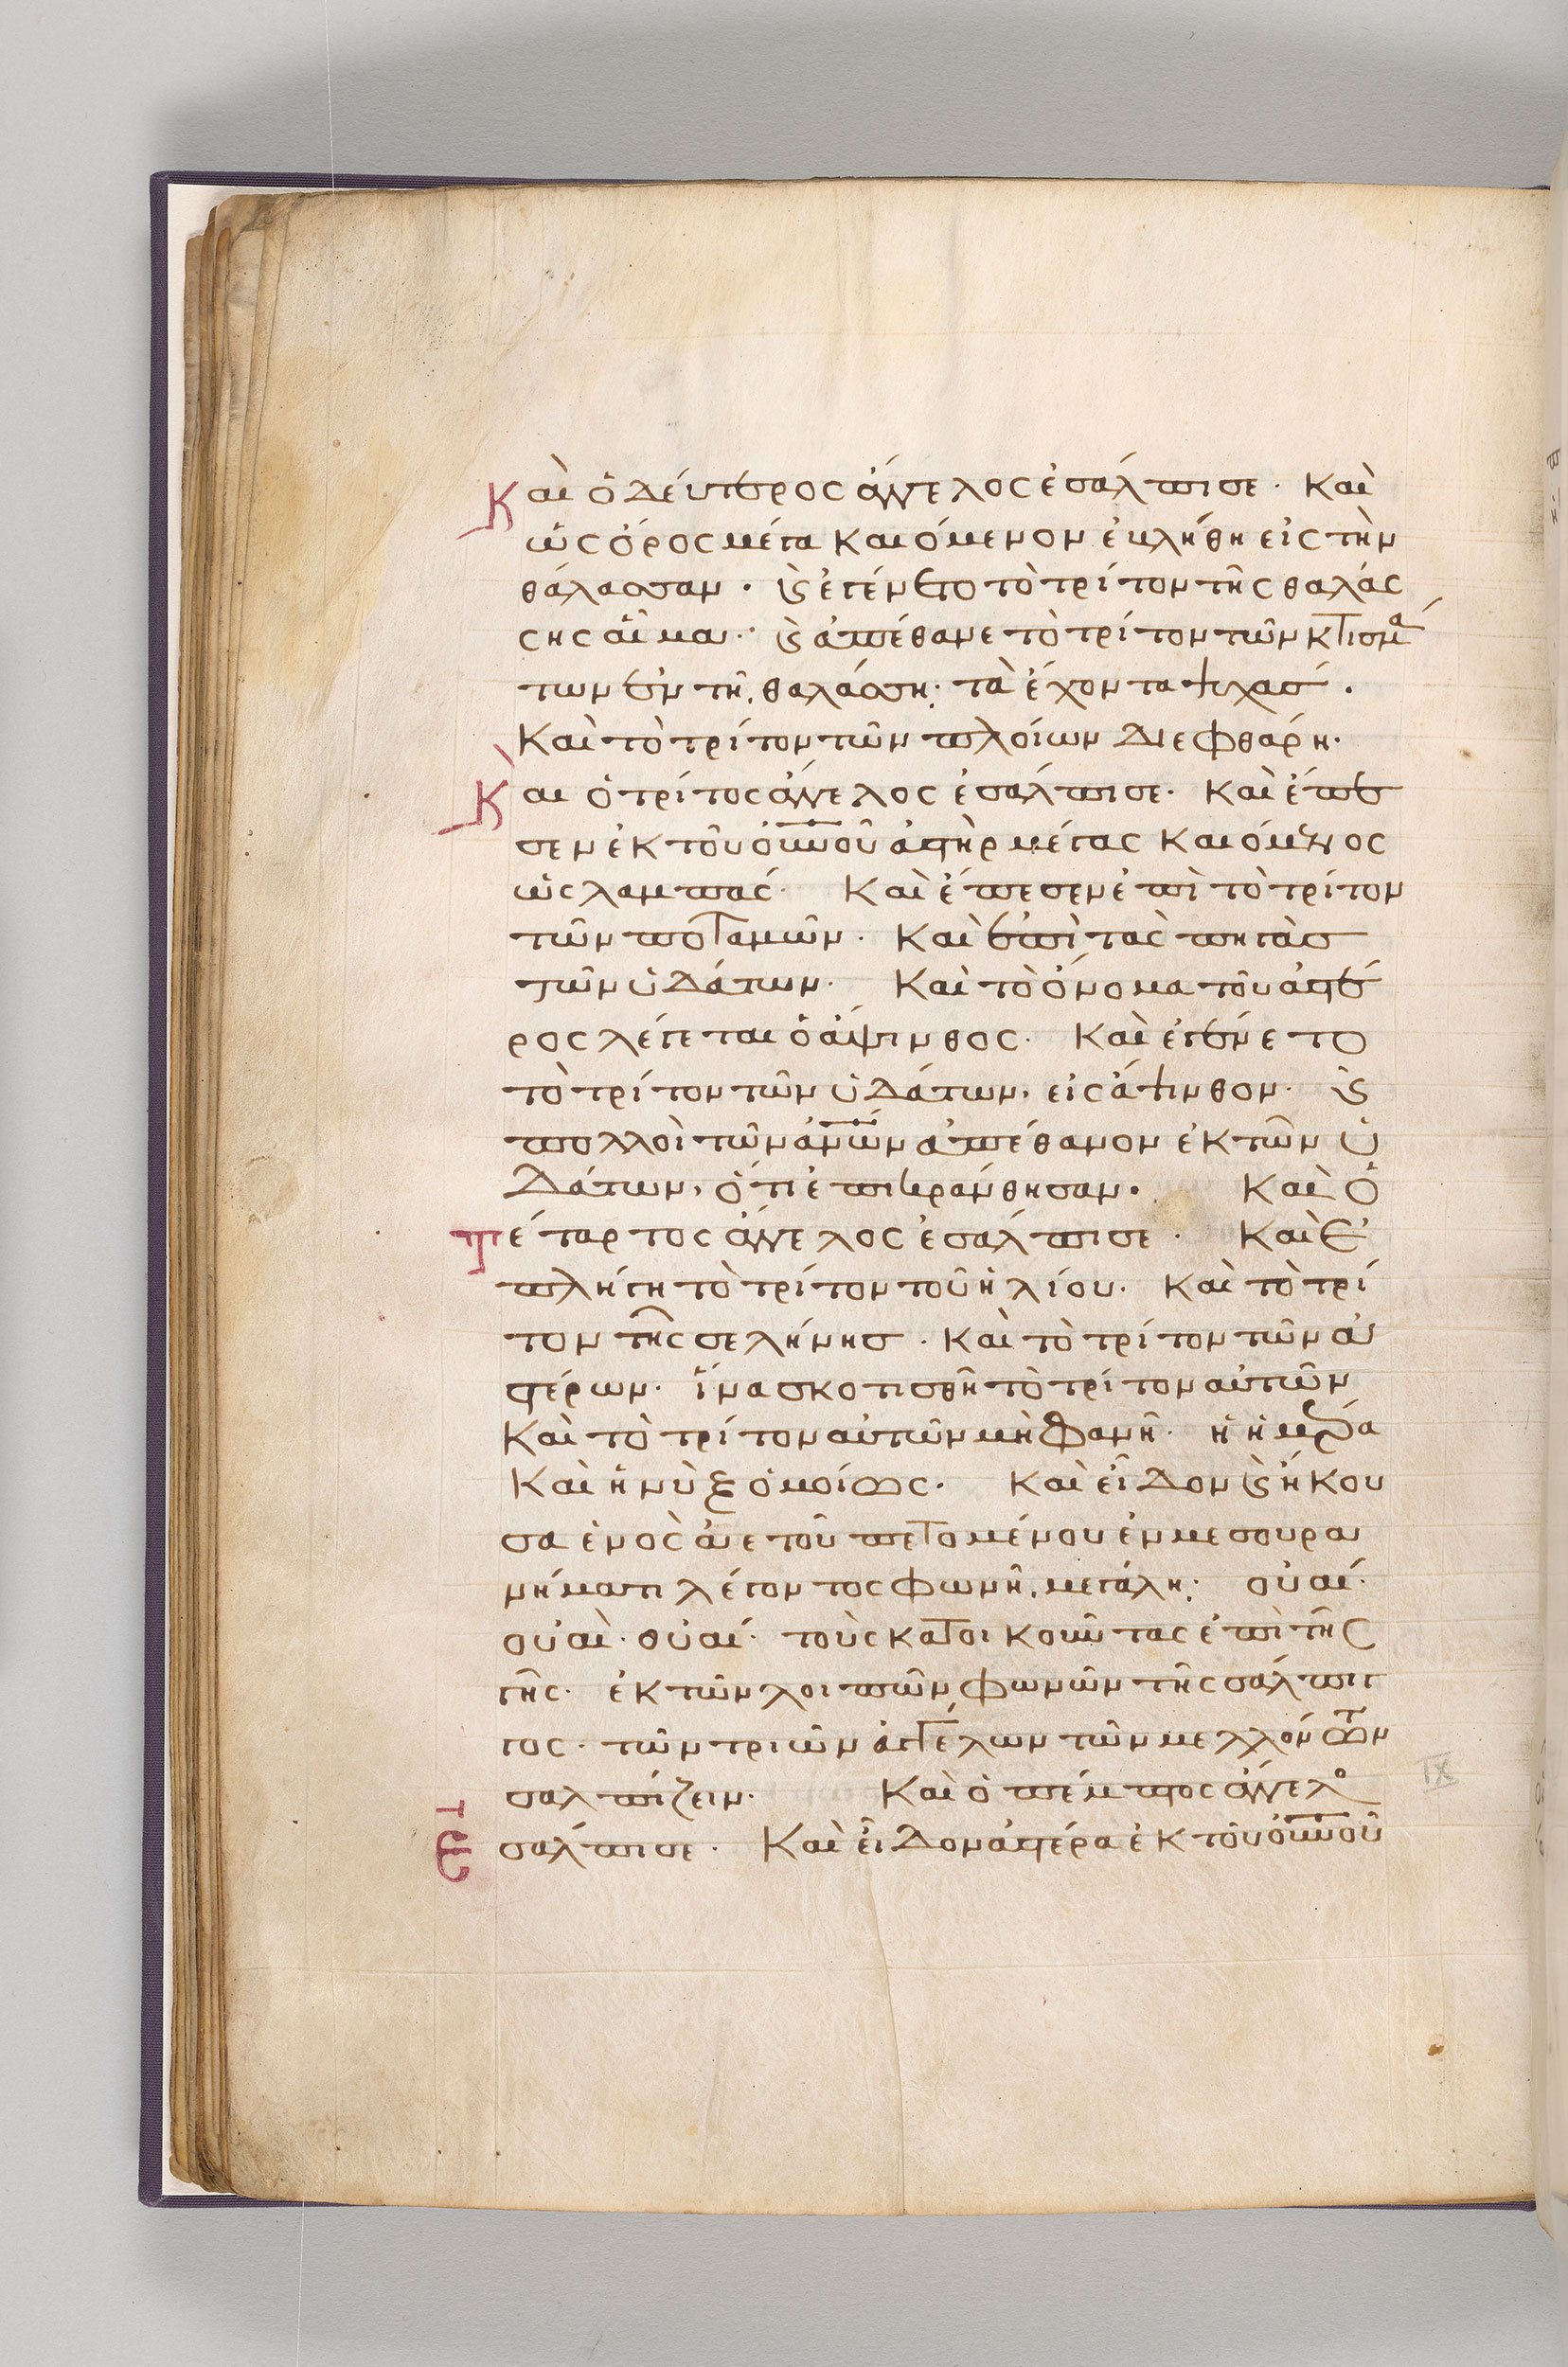 Καὶ ὁ δεύτερος ἄγγελος ἐσάλπισε· καὶ
ὡς ὄρος μέγα καιόμενον ἐβλήθη εἰς τὴν
θάλασσαν· ϗ ἐγένετο τὸ τρίτον τῆς θαλάσ
σης αἷμα· ϗ ἀπέθανε τὸ τρίτον τῶν κτισμά
των ἐν τῆ θαλάσση· τὰ ἔχοντα ψυχάσ·
Καὶ τὸ τρίτον τῶν πλοίων διεφθάρη·
Καὶ ὁ τρίτος ἄγγελος ἐσάλπισε· καὶ ἔπε
σεν ἐκ τοῦ οὐνοῦ ἀστὴρ μέγας καιόμενος
ὡς λαμπάς· καὶ ἔπεσεν ἐπὶ τὸ τρίτον
τῶν ποταμῶν· καὶ ἐπὶ τὰς πηγὰσ
τῶν ὑδάτων· καὶ τὸ ὄνομα τοῦ ἀστέ
ρος λέγεται ὁ ἄψινθος· καὶ ἐγένετο
τὸ τρίτον τῶν ὑδάτων, εἰς ἄψινθον· ϗ
πολλοὶ τῶν ἀνῶν ἀπέθανον ἐκ τῶν ὑ
δάτων, ὅτι ἐπικράνθησαν· Καὶ ὁ
τέταρτος ἄγγελος ἐσάλπισε· καὶ ἐ
πλήγη τὸ τρίτον τοῦ ἡλίου· καὶ τὸ τρί
τον τῆς σελήνησ· καὶ τὸ τρίτον τῶν ἀ
στέρων· ἵνα σκοτισθῆ τὸ τρίτον αὐτῶν
Καὶ τὸ τρίτον αὐτῶν μὴ φανῆ· ἡ ἡμέρα
Καὶ ἡ νὺξ ὁμοίως· καὶ εἶδον ϗ ἤκου
σα ἑνὸς ἀετοῦ πετομένου ἐν μεσουρα
νήματι λέγοντος φωνῆ μεγάλη· οὐαί·
οὐαὶ· οὐαί· τοὺς κατοικοῦντας ἐπὶ τῆς
γῆς· ἐκ τῶν λοιπῶν φωνῶν τῆς σάλπιγ
γος· τῶν τριῶν ἀγγέλων τῶν μελλόντων
σαλπίζειν· Καὶ ὁ πέμπτος ἄγγελο
ἐσάλπισε· Καὶ εἶδον ἀστέρα ἐκ τοῦ οὐνοῦ
IX